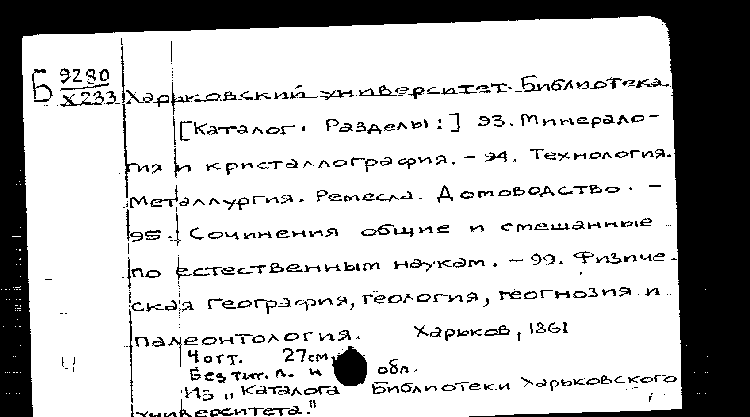 Б 9280
Х233 Харьковский университет. Библиотека.
[Каталог. Разделы:] 93. Минерало-
гия и кристаллография. – 94. Технология.
Металлургия. Ремесла. Домоводство. –
95. Сочинения общие и смешанные
по естественным наукам. – 99. Физиче-
ская география, геология, геогнозия и
палеонтология. Харьков, 1861
4 отт. 27см.
Без тит. л. и обл.
Из "Каталога Библиотеки Харьковского
университета."